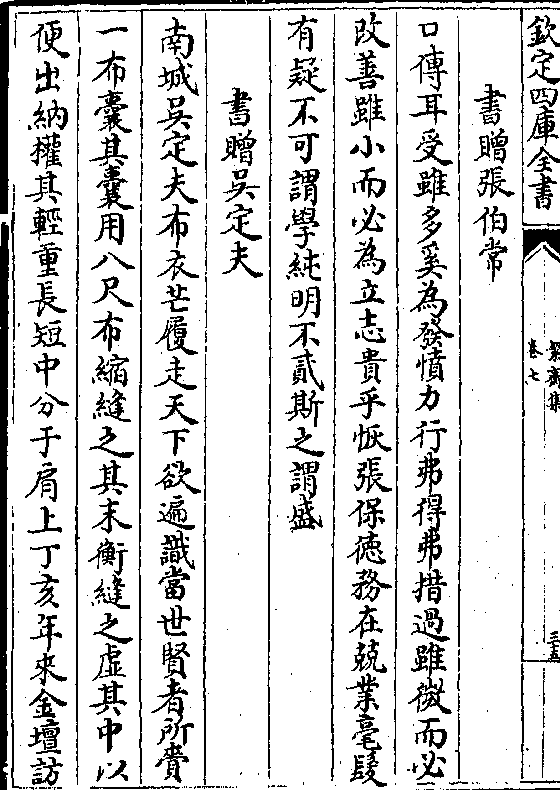 欽定四庫全書
絜齋集
卷七
三五
書贈張伯常
口傳耳受雖多奚為發憤力行弗得弗措過雖微而必
改善雖小而必為立志貴乎恢張保德務在兢業毫髮
有疑不可謂學純明不貳斯之謂盛
書贈吳定夫
南城吳定夫布衣芒履走天下欲遍識當世賢者所賫
一布囊其囊用八尺布縮縫之其末衡縫之虛其中以
便出納權其輕重長短中分于肩上丁亥年來金壇訪